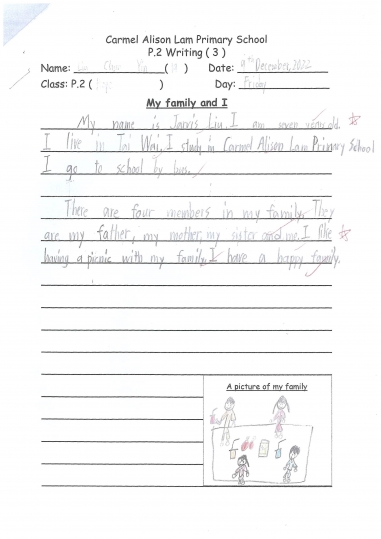 Carmel Alison Lam Primary School
P.2 Writing ( 3 )
Name: ( ) Date: 9th December, 2022
Class: P.2 ( ) Day: Friday
My family and I
My name is Jarvis Liu. I am seven years old.
I live in Tai Wai. I study in Carmel Alison Lam Primary School
I go to school by bus.
There are four members in my family. They
are my father, my mother, my sister and me. I like
having a picnic with my family. I have a happy family.
A picture of my family